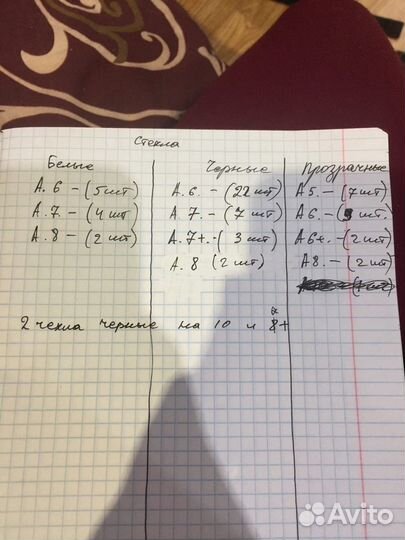 Стекла
Белые
А. 6 - (5 шт)
А. 7. - (4 шт)
А. 8 - (2 шт)
Черные
А. 6. - (22 шт)
А. 7. - (7 шт)
А. 7+. - (3 шт)
А. 8 (2 шт)
Прозрачные
А5. - (7 шт)
А6. - шт.
А6+. - (2 шт)
А8. - (2 шт)
2 чехла черные на 10 и 8+
x
Avito